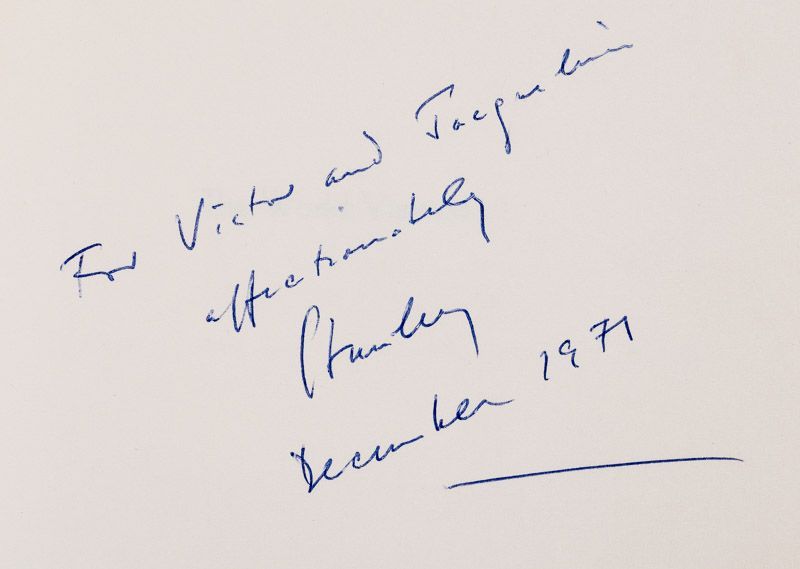 For Victor and Jacqueline
affectionately
Stanley
December 1971